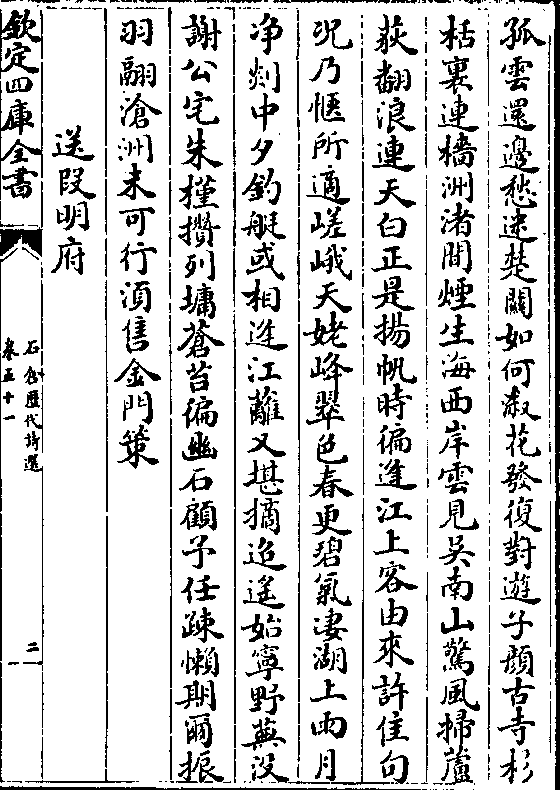 孤雲還邊愁迷楚關如何淑花發復對遊子顔古寺杉
栝裏連檣洲渚間煙生海西岸雲見吳南山驚風掃蘆
荻翻浪連天白正是揚帆時偏逢江上客由來許佳句
况乃愜所適嵯峨天姥峰翠色春更碧氣凄湖上雨月
净剡中夕釣艇或相逢江蘺又堪摘迢遥始寧野蕪没
謝公宅朱槿攅列墉蒼苔徧幽石顧予任疎懶期爾振
羽翮滄洲未可行須售金門策
送段明府
欽定四庫全書
石倉歷代詩選
卷五十一
二